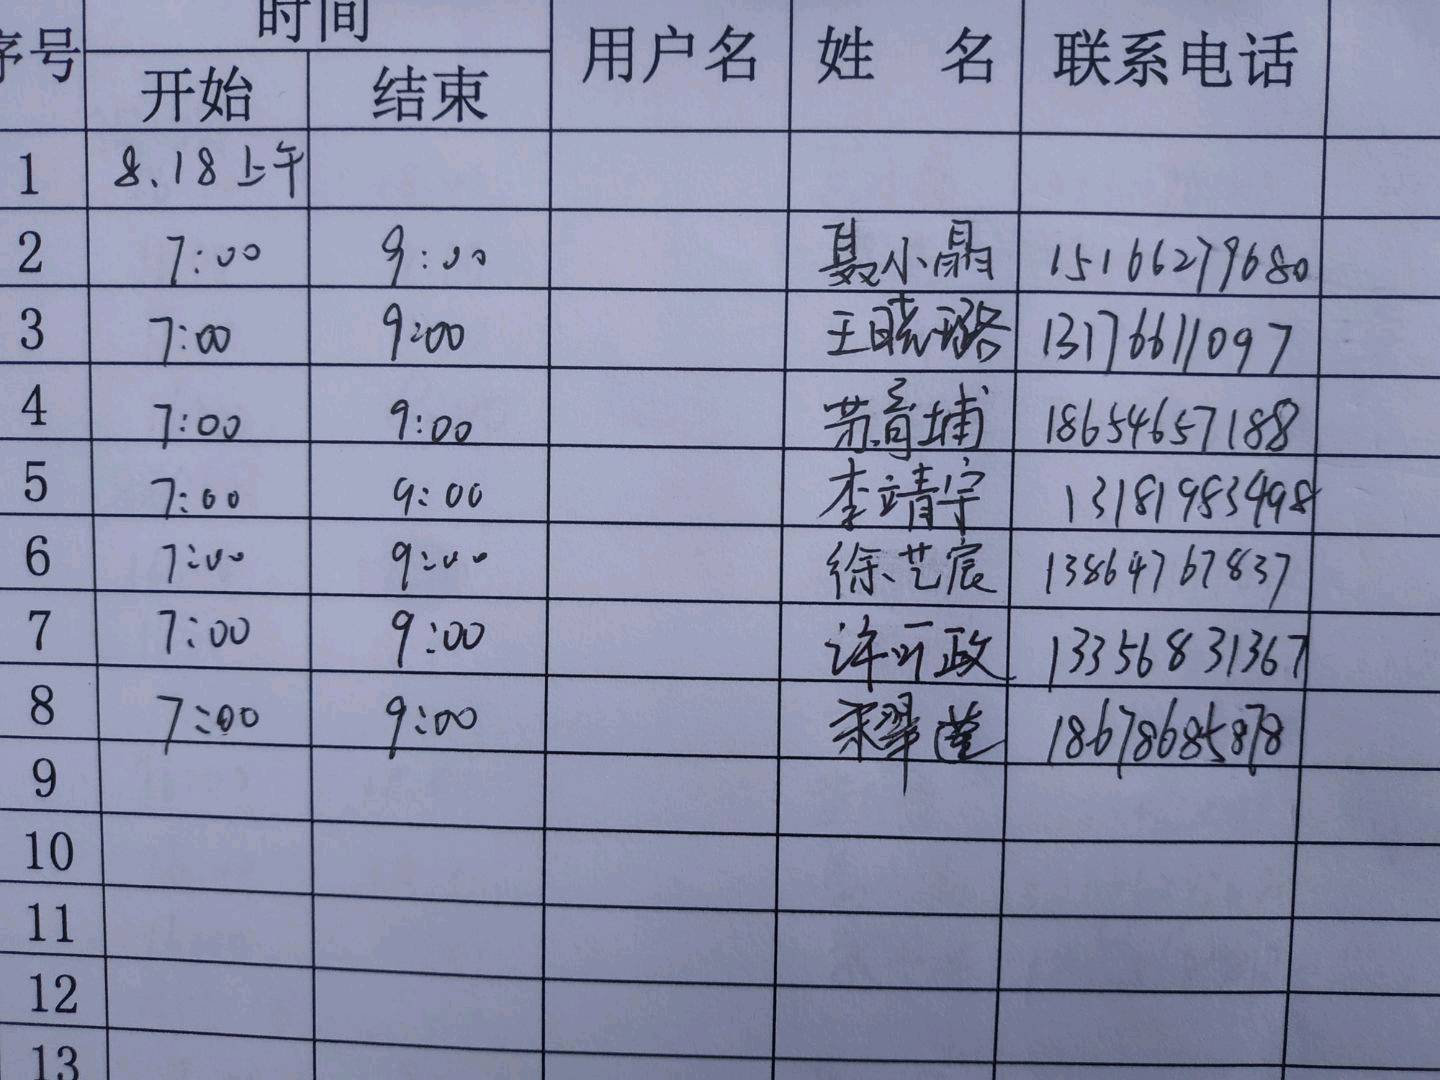 时间
序号 开始 结束 用户名 姓 名 联系电话
1 8.18上午
2 7:00 9:00 聂小晶 15166279680
3 7:00 9:00 王晓璐 13176611097
4 7:00 9:00 苏育埔 18654657188
5 7:00 9:00 李靖宇 13181983498
6 7:00 9:00 徐艺宸 13864767837
7 7:00 9:00 许可政 13356831367
8 7:00 9:00 18678685878
9
10
11
12
13